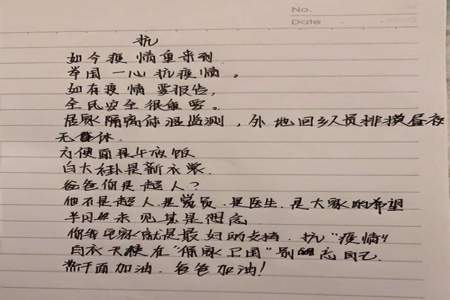 No.
Date
抗
如今疫情重来到
举国一心抗疫情。
如有疫情要报告，
全民安全很重要。
居家隔离体温监测，外地回乡人员排摸昼夜
无整体.
方便面是年夜饭
白大褂是新衣裳
爸爸你是超人？
他不是超人.是党员.是医生.是大家的希望
半月未见甚是想念
你我宅家就是最好的支持.抗“疫情”
白衣天使在“保家卫国”别忘
加油.爸爸加油！